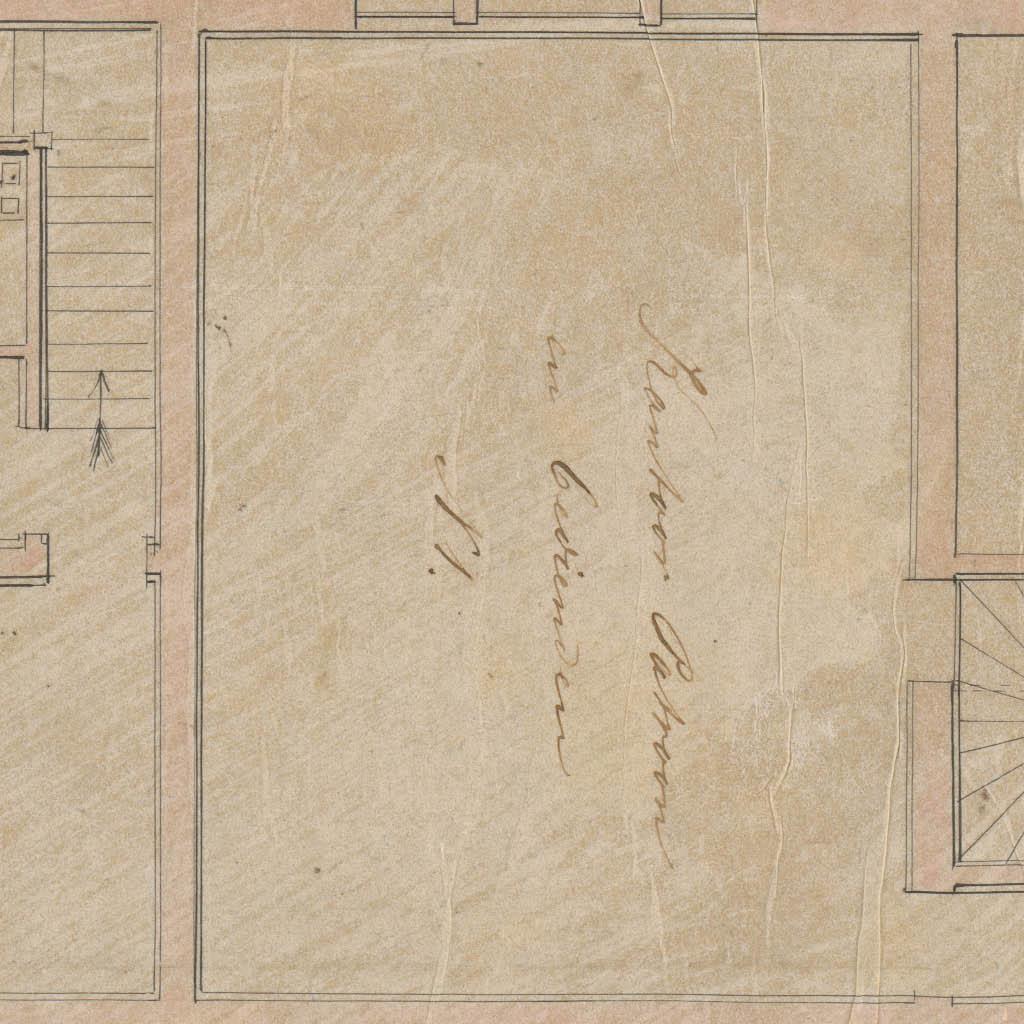 Kantoor Patroon
en bedienden
N. 1.